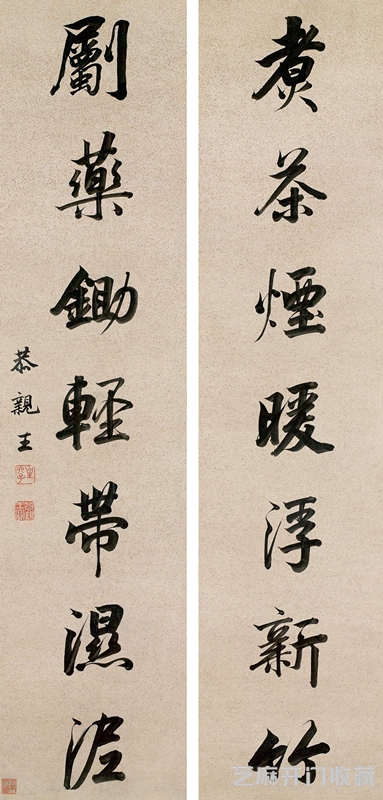 煮茶煙暖浮新竹
劚藥鋤輕帶濕泥
恭親王
芝麻开门收藏